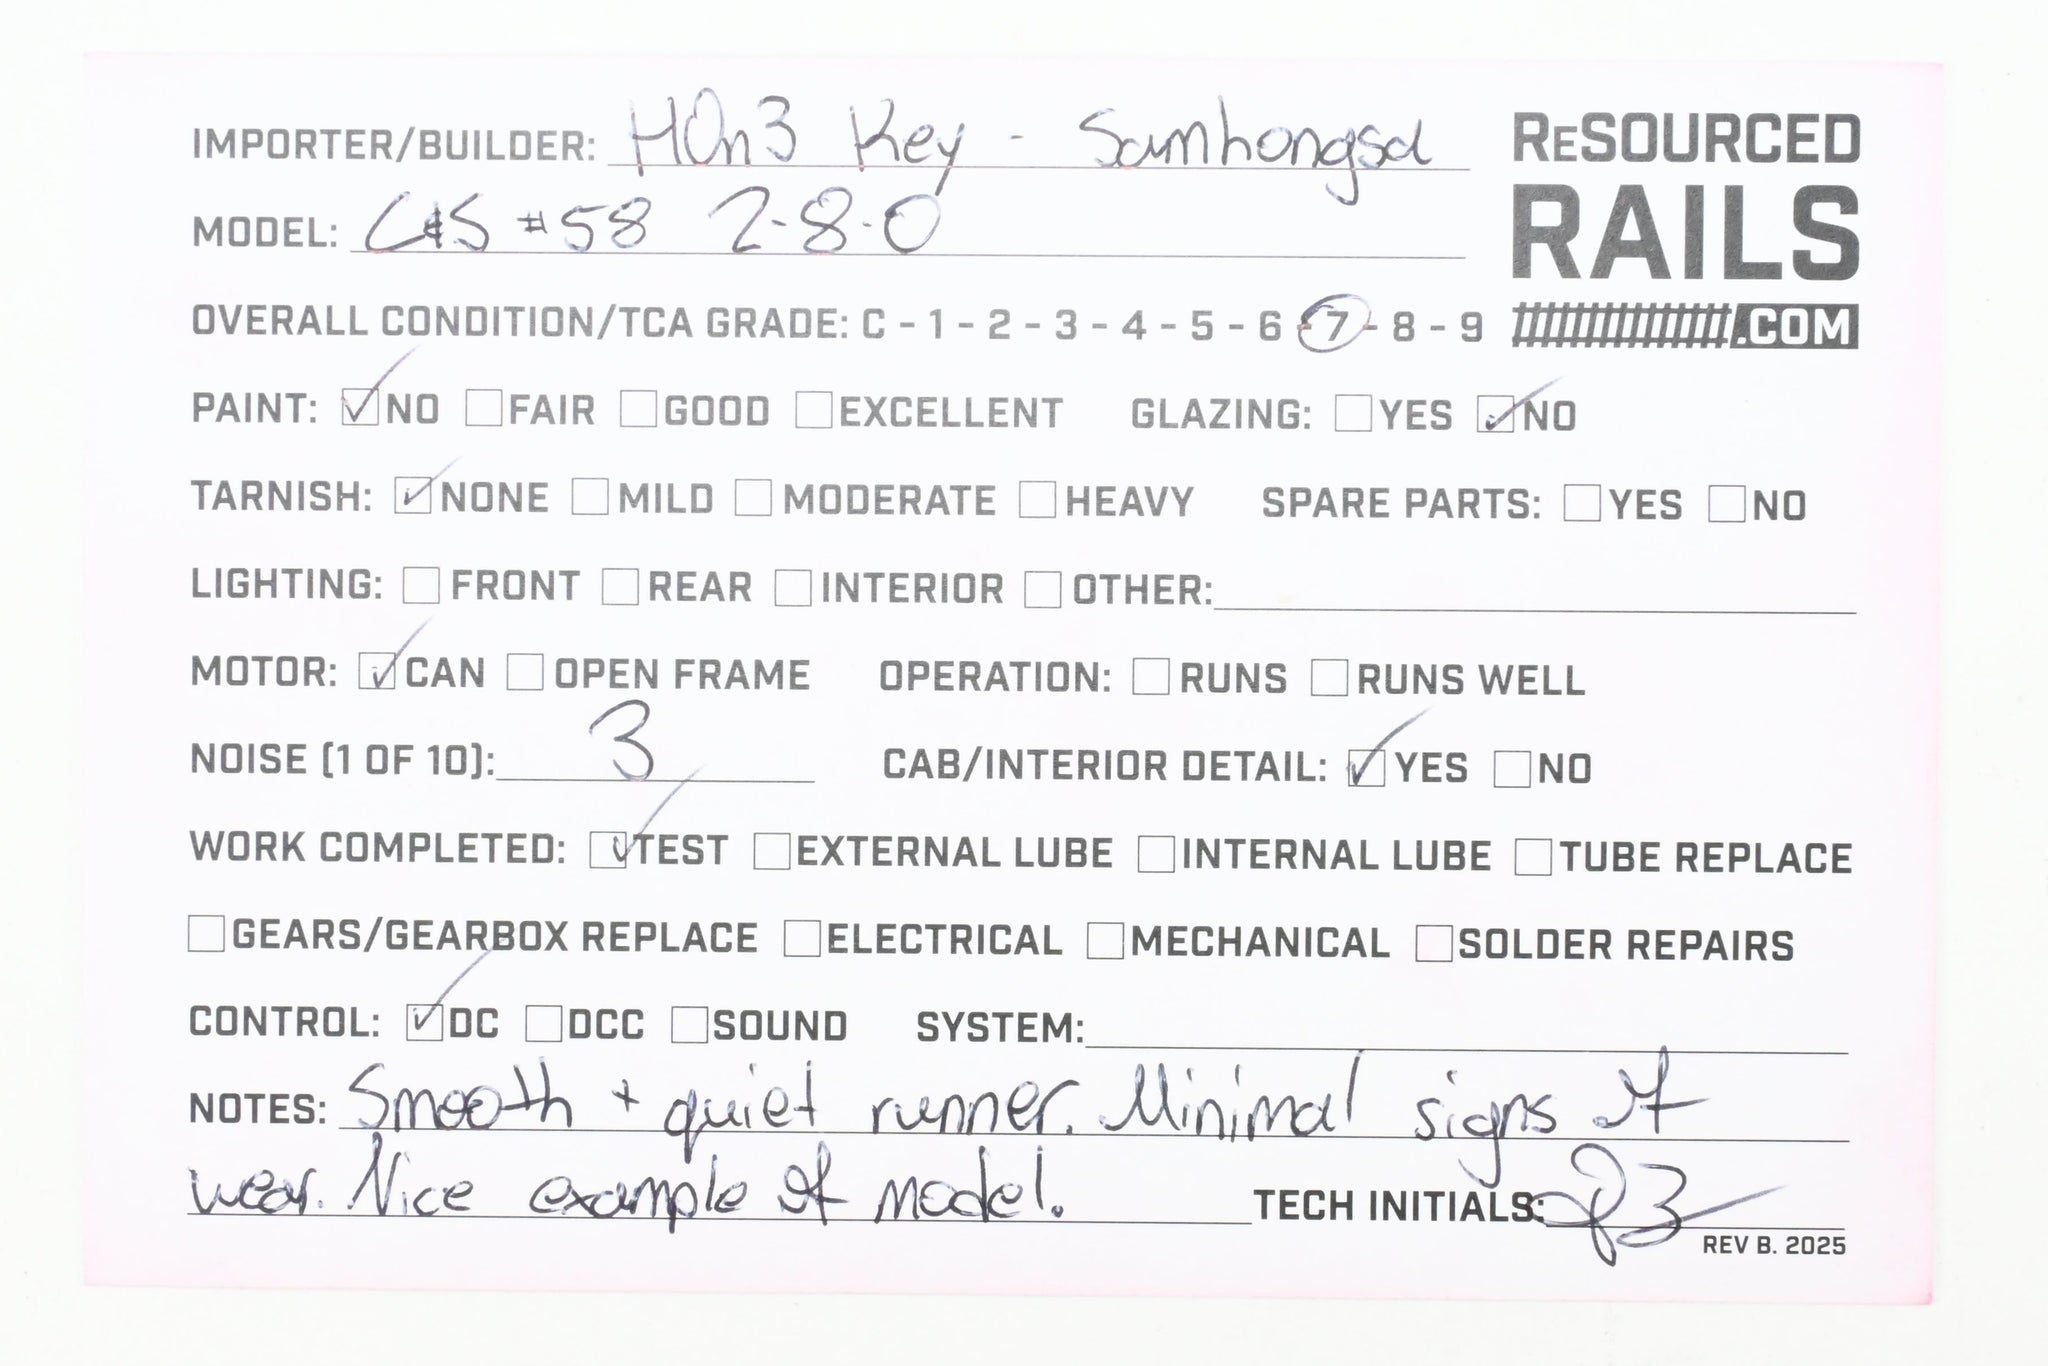 IMPORTER/BUILDER: HOn3 Key - Samhongsa
ReSOURCED
RAILS
.COM
MODEL: C&S #58 2-8-0
OVERALL CONDITION/TCA GRADE: C - 1 - 2 - 3 - 4 - 5 - 6 - 7 - 8 - 9
PAINT: ☑NO ☐FAIR ☐GOOD ☐EXCELLENT GLAZING: ☐YES ☑NO
TARNISH: ☑NONE ☐MILD ☐MODERATE ☐HEAVY SPARE PARTS: ☐YES ☐NO
LIGHTING: ☐FRONT ☐REAR ☐INTERIOR ☐OTHER:
MOTOR: ☑CAN ☐OPEN FRAME OPERATION: ☐RUNS ☐RUNS WELL
NOISE (1 OF 10): 3 CAB/INTERIOR DETAIL: ☑YES ☐NO
WORK COMPLETED: ☑TEST ☐EXTERNAL LUBE ☐INTERNAL LUBE ☐TUBE REPLACE
☐GEARS/GEARBOX REPLACE ☐ELECTRICAL ☐MECHANICAL ☐SOLDER REPAIRS
CONTROL: ☑DC ☐DCC ☐SOUND SYSTEM:
NOTES: Smooth + quiet runner. Minimal signs of
wear. Nice example of model. TECH INITIALS:
REV B. 2025